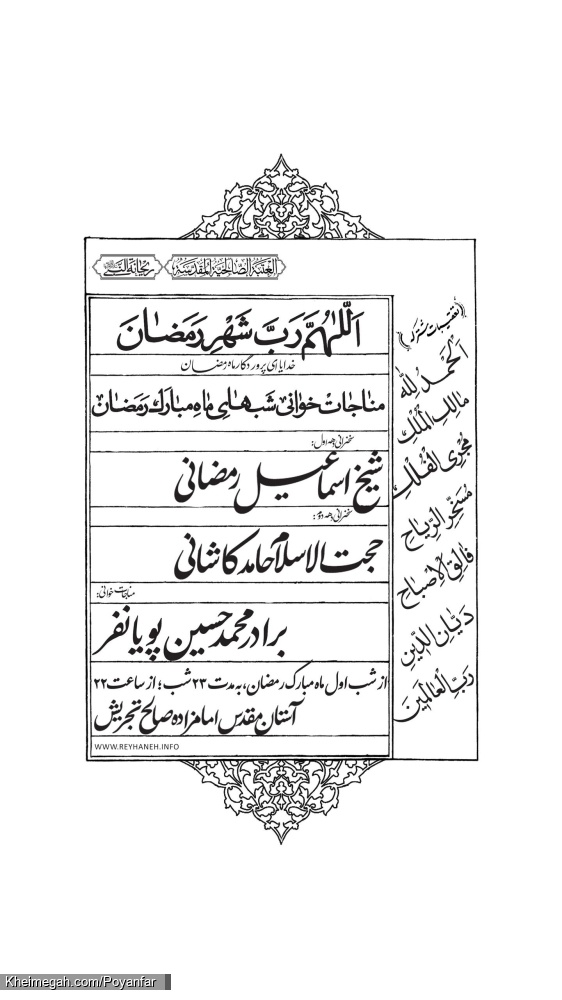 العتبة الصالحية المقدسة
ریحانة النبی
اَللّٰهُمَّ رَبَّ شَهْرِ رَمَضٰانَ
خدایا ای پروردگار ماه رمضان
مناجات خوانی شب‌های ماه مبارک رمضان
سخنرانی دهه اول:
شیخ اسماعیل رمضانی
سخنرانی دهه دوم:
حجت الاسلام حامد کاشانی
مناجات خوانی:
برادر محمد حسین پویانفر
از شب اول ماه مبارک رمضان، به مدت ۲۳ شب؛ از ساعت ۲۲
آستان مقدس امامزاده صالح تجریش
WWW.REYHANEH.INFO
(تعقیبات مشترکه)
اَلْحَمْدُ لِلّٰهِ
مَالِكِ الْمُلْكِ
مُجْرِي الْفُلْكِ
مُسَخِّرِ الرِّيَاحِ
فَالِقِ الْإِصْبَاحِ
دَيَّانِ الدِّينِ
رَبِّ الْعَالَمِينَ
Kheimegah.com/Poyanfar